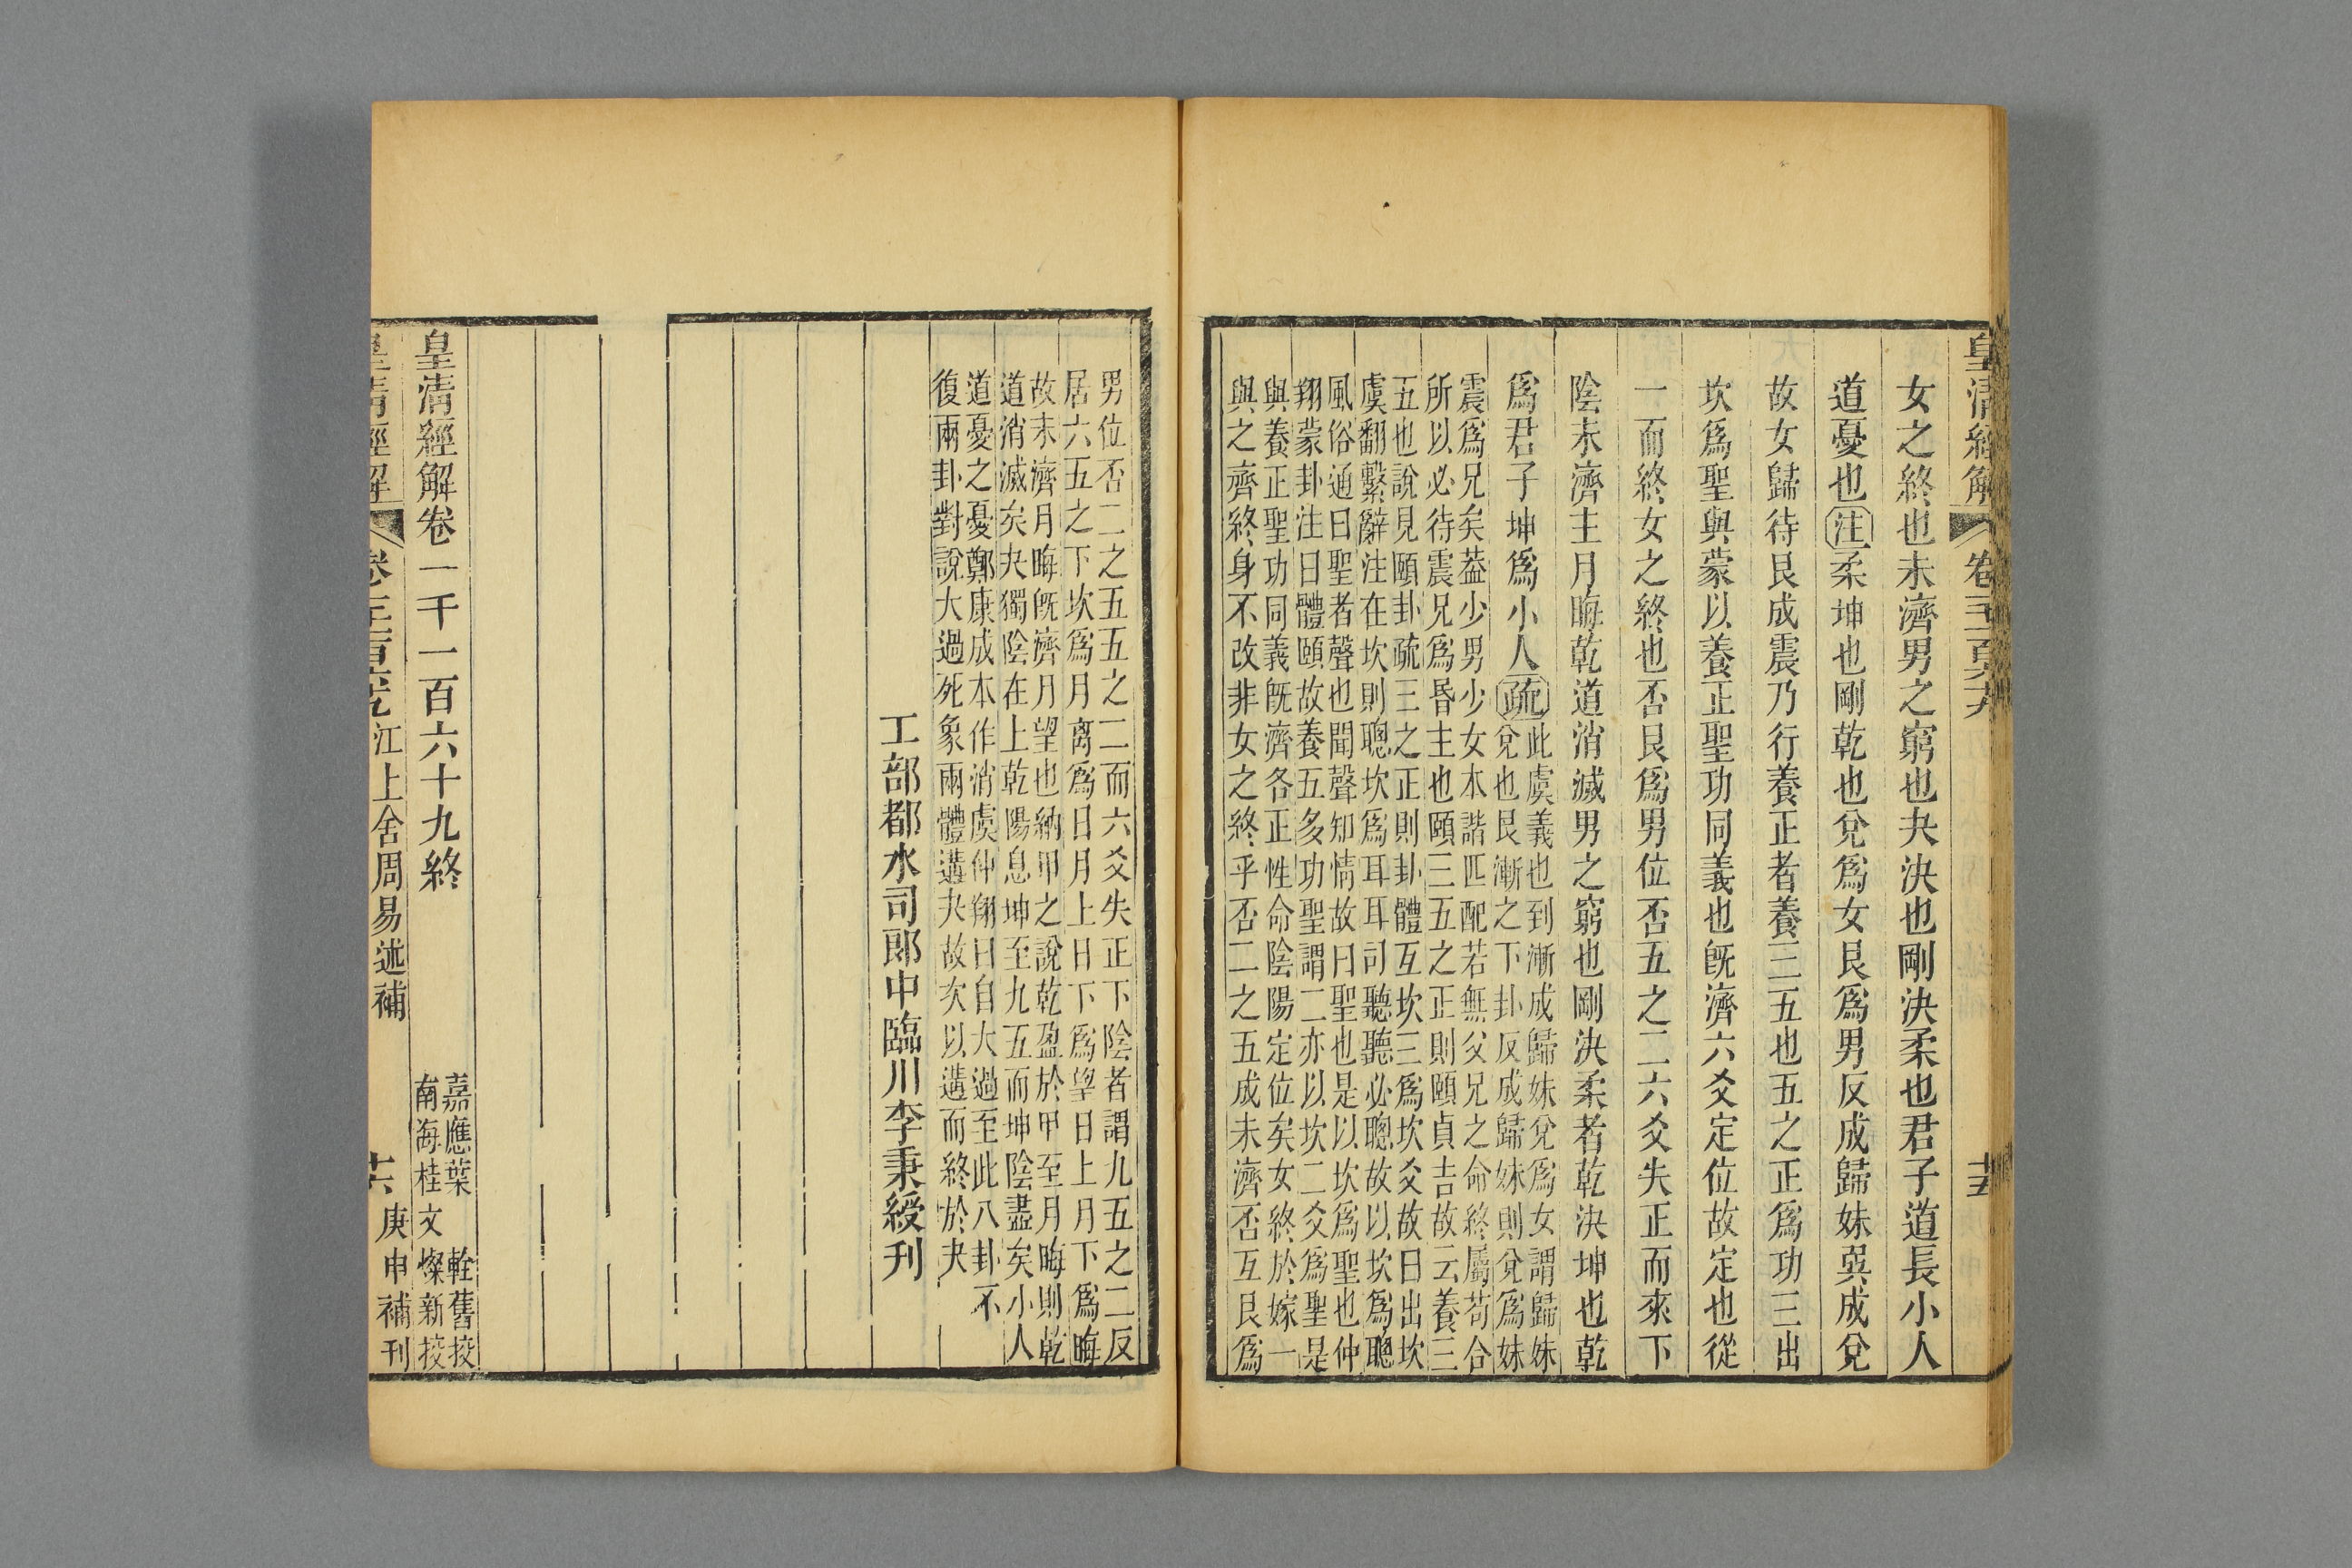 女之終也未濟男之窮也夬決也剛決柔也君子道長小人
道憂也注柔坤也剛乾也兌爲女艮爲男反成歸妹巽成兌
故女歸待艮成震乃行養正者養三五也五之正爲功三出
坎爲聖與蒙以養正聖功同義也旣濟六爻定位故定也從
一而終女之終也否艮爲男位否五之二六爻失正而來下
陰未濟主月晦乾道消滅男之窮也剛決柔者乾決坤也乾
爲君子坤爲小人疏
此虞義也到漸成歸妹兌爲女謂歸妹
兌也艮漸之下卦反成歸妹則兌爲妹
震爲兄矣葢少男少女本諧匹配若無父兄之命終屬苟合
所以必待震兄爲昏主也頤三五之正則頤貞吉故云養三
五也說見頤卦疏三之正則卦體互坎三爲坎爻故曰出坎
虞翻繫辭注在坎則聰坎爲耳耳司聽聽必聰故以坎爲聰
風俗通曰聖者聲也聞聲知情故曰聖也是以坎爲聖也仲
翔蒙卦注曰體頤故養五多功聖謂二亦以坎二爻爲聖是
與養正聖功同義旣濟各正性命陰陽定位矣女終於嫁一
與之齊終身不改非女之終乎否二之五成未濟否互艮爲
男位否二之五五之二而六爻失正下陰者謂九五之二反
居六五之下坎爲月離爲日月上日下爲望日上月下爲晦
故未濟月晦旣濟月望也納甲之說乾盈於甲至月晦則乾
道消滅矣夬獨陰在上乾陽息坤至九五而坤陰盡矣小人
道憂之憂鄭康成本作消虞仲翔曰自大過至此八卦不
復兩卦對說大過死象兩體遘夬故次以遘而終於夬
工部都水司郎中臨川李秉綬刊
皇淸經解卷一千一百六十九終
嘉應葉 輇舊挍
南海桂文燦新挍
江上舍周易述補
庚申補刊